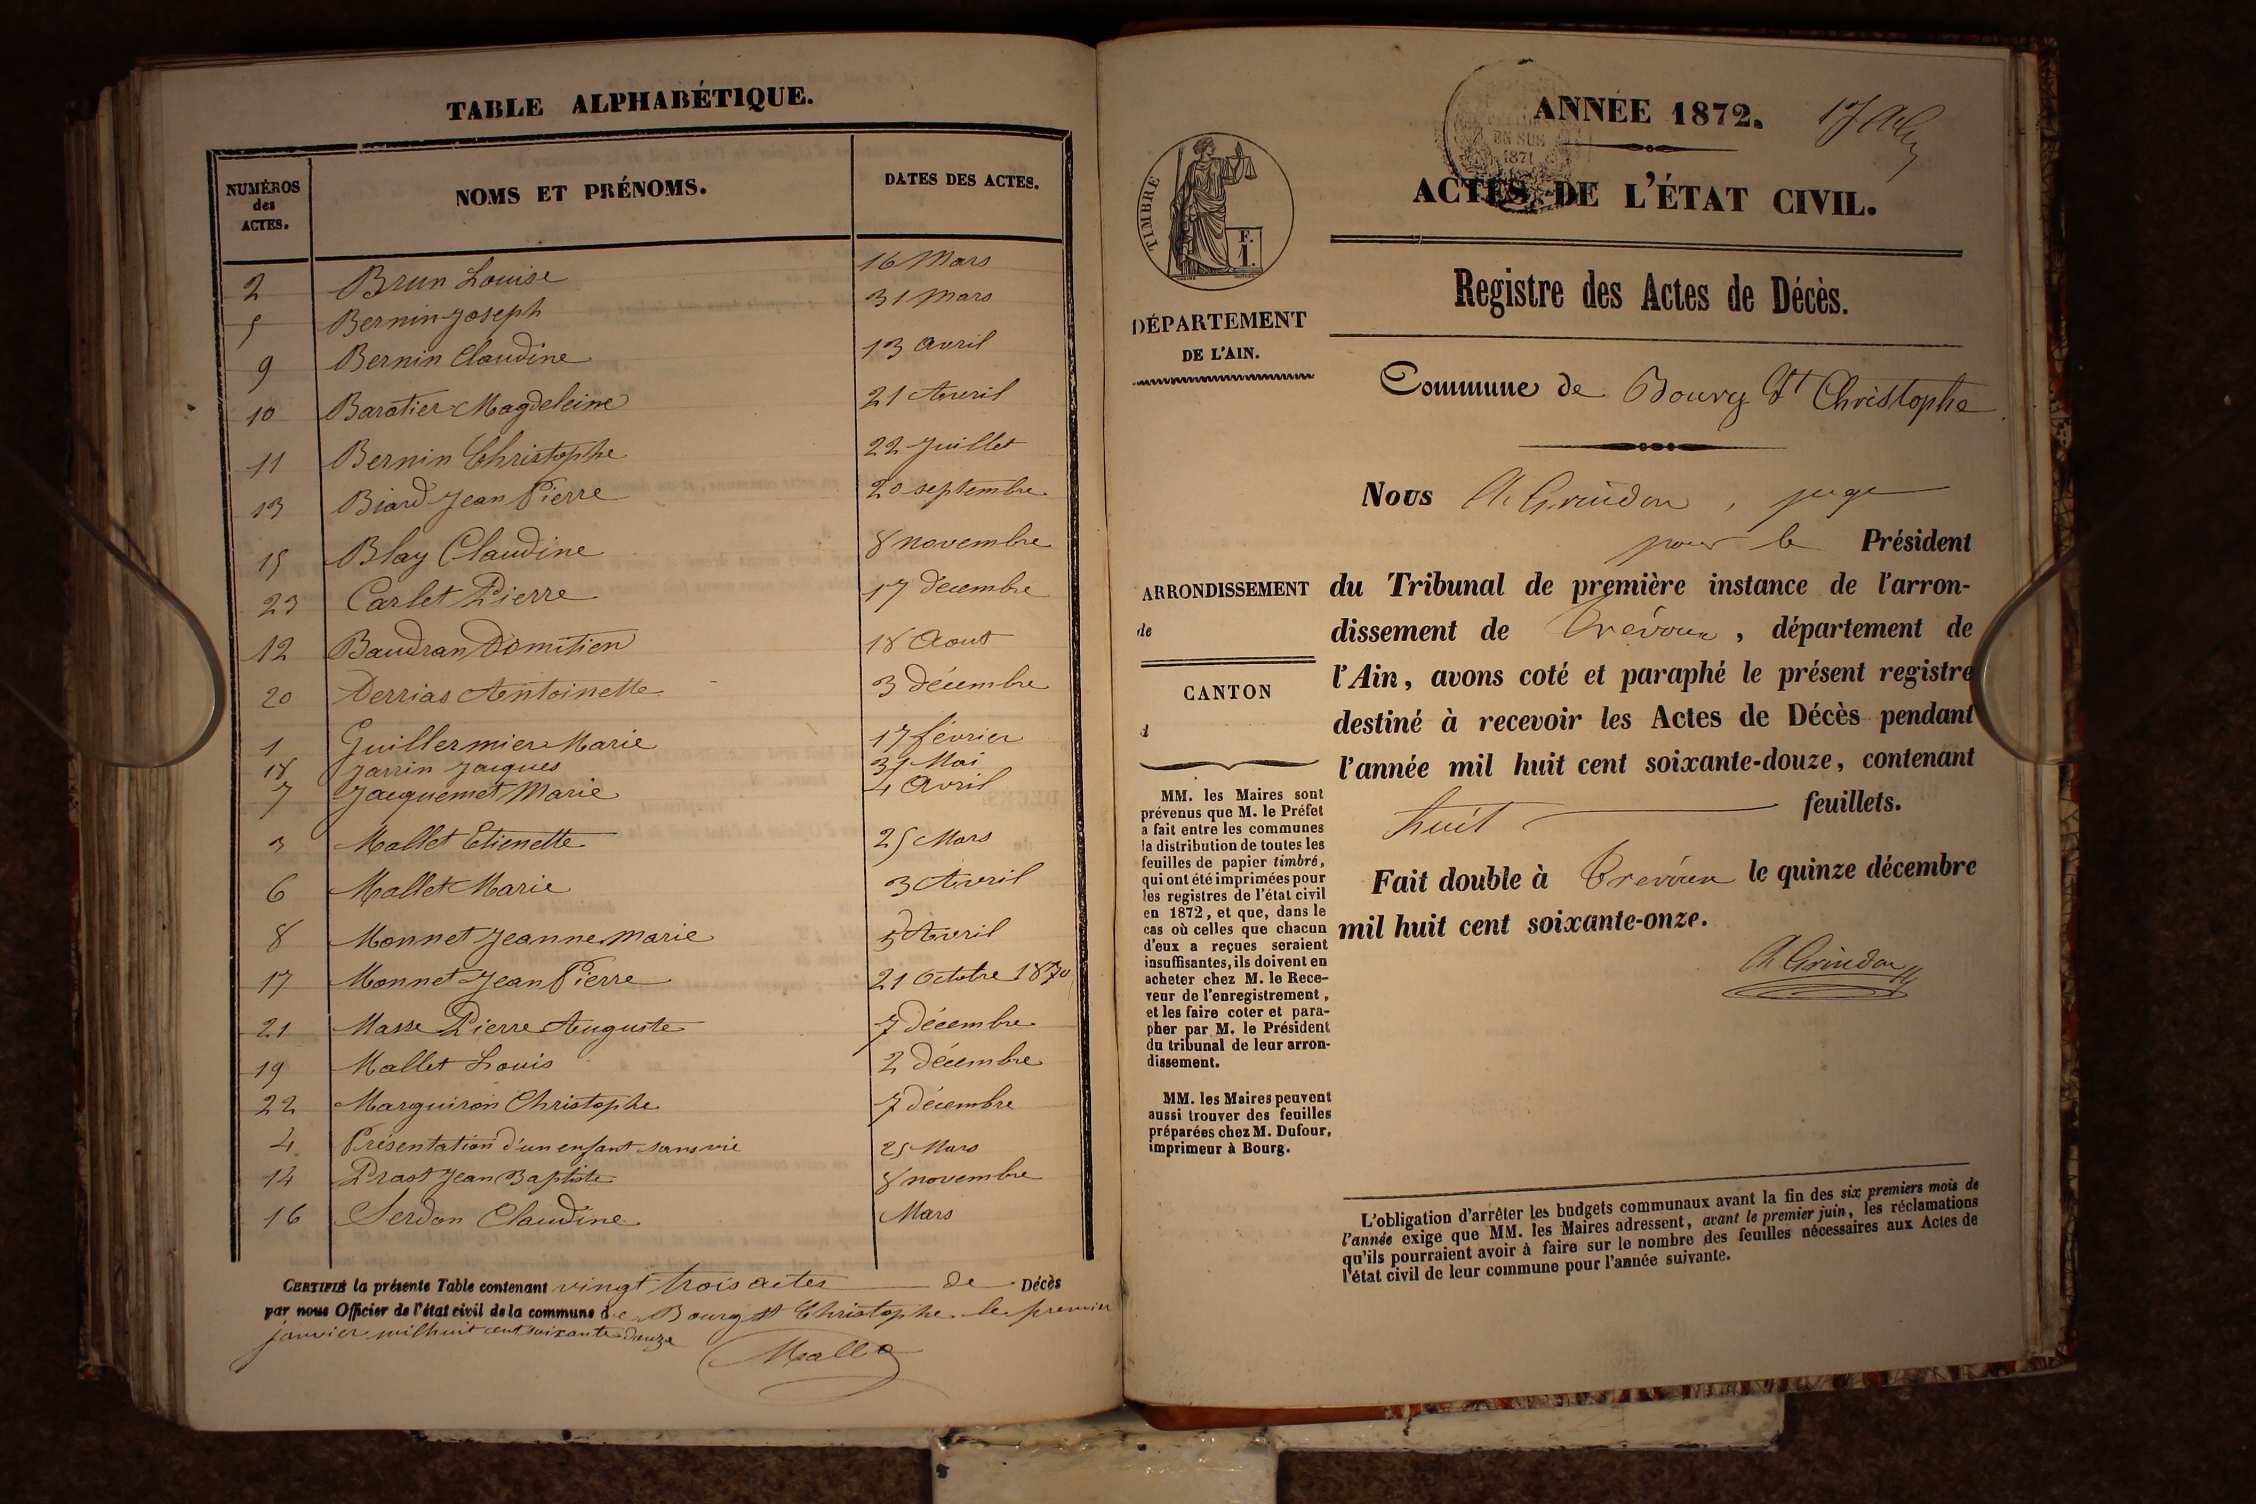 TABLE ALPHABÉTIQUE.
NUMÉROS des ACTES. NOMS ET PRÉNOMS. DATES DES ACTES.
2 Brun Louise 16 Mars
5 Bernin Joseph 31 Mars
9 Bernin Claudine 13 Avril
10 Baratier Magdeleine 21 Avril
11 Bernin Christophe 22 Juillet
13 Biard Jean Pierre 20 septembre
15 Blay Claudine 8 novembre
23 Carlet Pierre 17 decembre
12 Baudran Domitien 18 Aout
20 Derrias Antoinette 3 décembre
1 Guillermier Marie 17 février
18 Jarrin Jacques 31 Mai
7 Jacquemet Marie 4 Avril
3 Mallet Etienette 25 Mars
6 Mallet Marie 3 Avril
8 Monnet Jeanne Marie 5 Avril
17 Monnet Jean Pierre 21 Octobre 1870
21 Masse Pierre Auguste 7 décembre
19 Mallet Louis 2 décembre
22 Marguiron Christophe 7 décembre
4 Présentation d'un enfant sans vie 25 Mars
14 Prast Jean Baptiste 8 novembre
16 Serdon Claudine Mars
CERTIFIÉ la présente Table contenant vingt trois actes de Décès
par nous Officier de l'état civil de la commune de Bourg St Christophe le premier
janvier mil huit cent soixante douze
ANNÉE 1872.
EN SUS
1871
ACTES DE L'ÉTAT CIVIL.
TIMBRE
F.
1.
Registre des Actes de Décès.
DÉPARTEMENT
DE L'AIN.
Commune de Bourg St Christophe
Nous Ch. Grindon, juge
pour le Président
ARRONDISSEMENT
de
du Tribunal de première instance de l'arron-
dissement de Trévoux, département de
l'Ain, avons coté et paraphé le présent registre
destiné à recevoir les Actes de Décès pendant
l'année mil huit cent soixante-douze, contenant
huit feuillets.
Fait double à Trévoux le quinze décembre
mil huit cent soixante-onze.
Ch Grindon
CANTON
d
MM. les Maires sont
prévenus que M. le Préfet
a fait entre les communes
la distribution de toutes les
feuilles de papier timbré,
qui ont été imprimées pour
les registres de l'état civil
en 1872, et que, dans le
cas où celles que chacun
d'eux a reçues seraient
insuffisantes, ils doivent en
acheter chez M. le Rece-
veur de l'enregistrement,
et les faire coter et para-
pher par M. le Président
du tribunal de leur arron-
dissement.
MM. les Maires peuvent
aussi trouver des feuilles
préparées chez M. Dufour,
imprimeur à Bourg.
L'obligation d'arrêter les budgets communaux avant la fin des six premiers mois de
l'année exige que MM. les Maires adressent, avant le premier juin, les réclamations
qu'ils pourraient avoir à faire sur le nombre des feuilles nécessaires aux Actes de
l'état civil de leur commune pour l'année suivante.